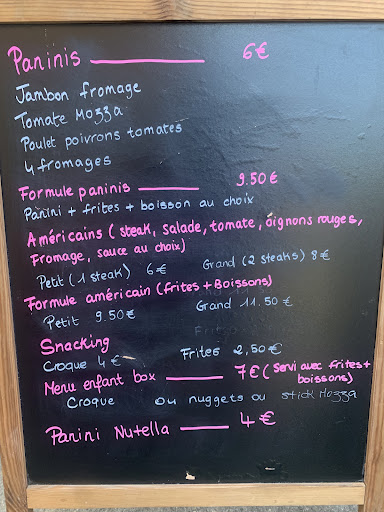 Paninis 6€
Jambon fromage
Tomate Mozza
Poulet poivrons tomates
4 fromages
Formule paninis 9.50€
Panini + frites + boisson au choix
Américains (steak, salade, tomate, oignons rouges,
fromage, sauce au choix)
Petit (1 steak) 6€ Grand (2 steaks) 8€
Formule américain (frites + Boissons)
Petit 9.50€ Grand 11.50€
Snacking
Croque 4€ Frites 2,50€
Menu enfant box 7€ (Servi avec frites +
boissons)
Croque ou nuggets ou stick Mozza
Panini Nutella 4€